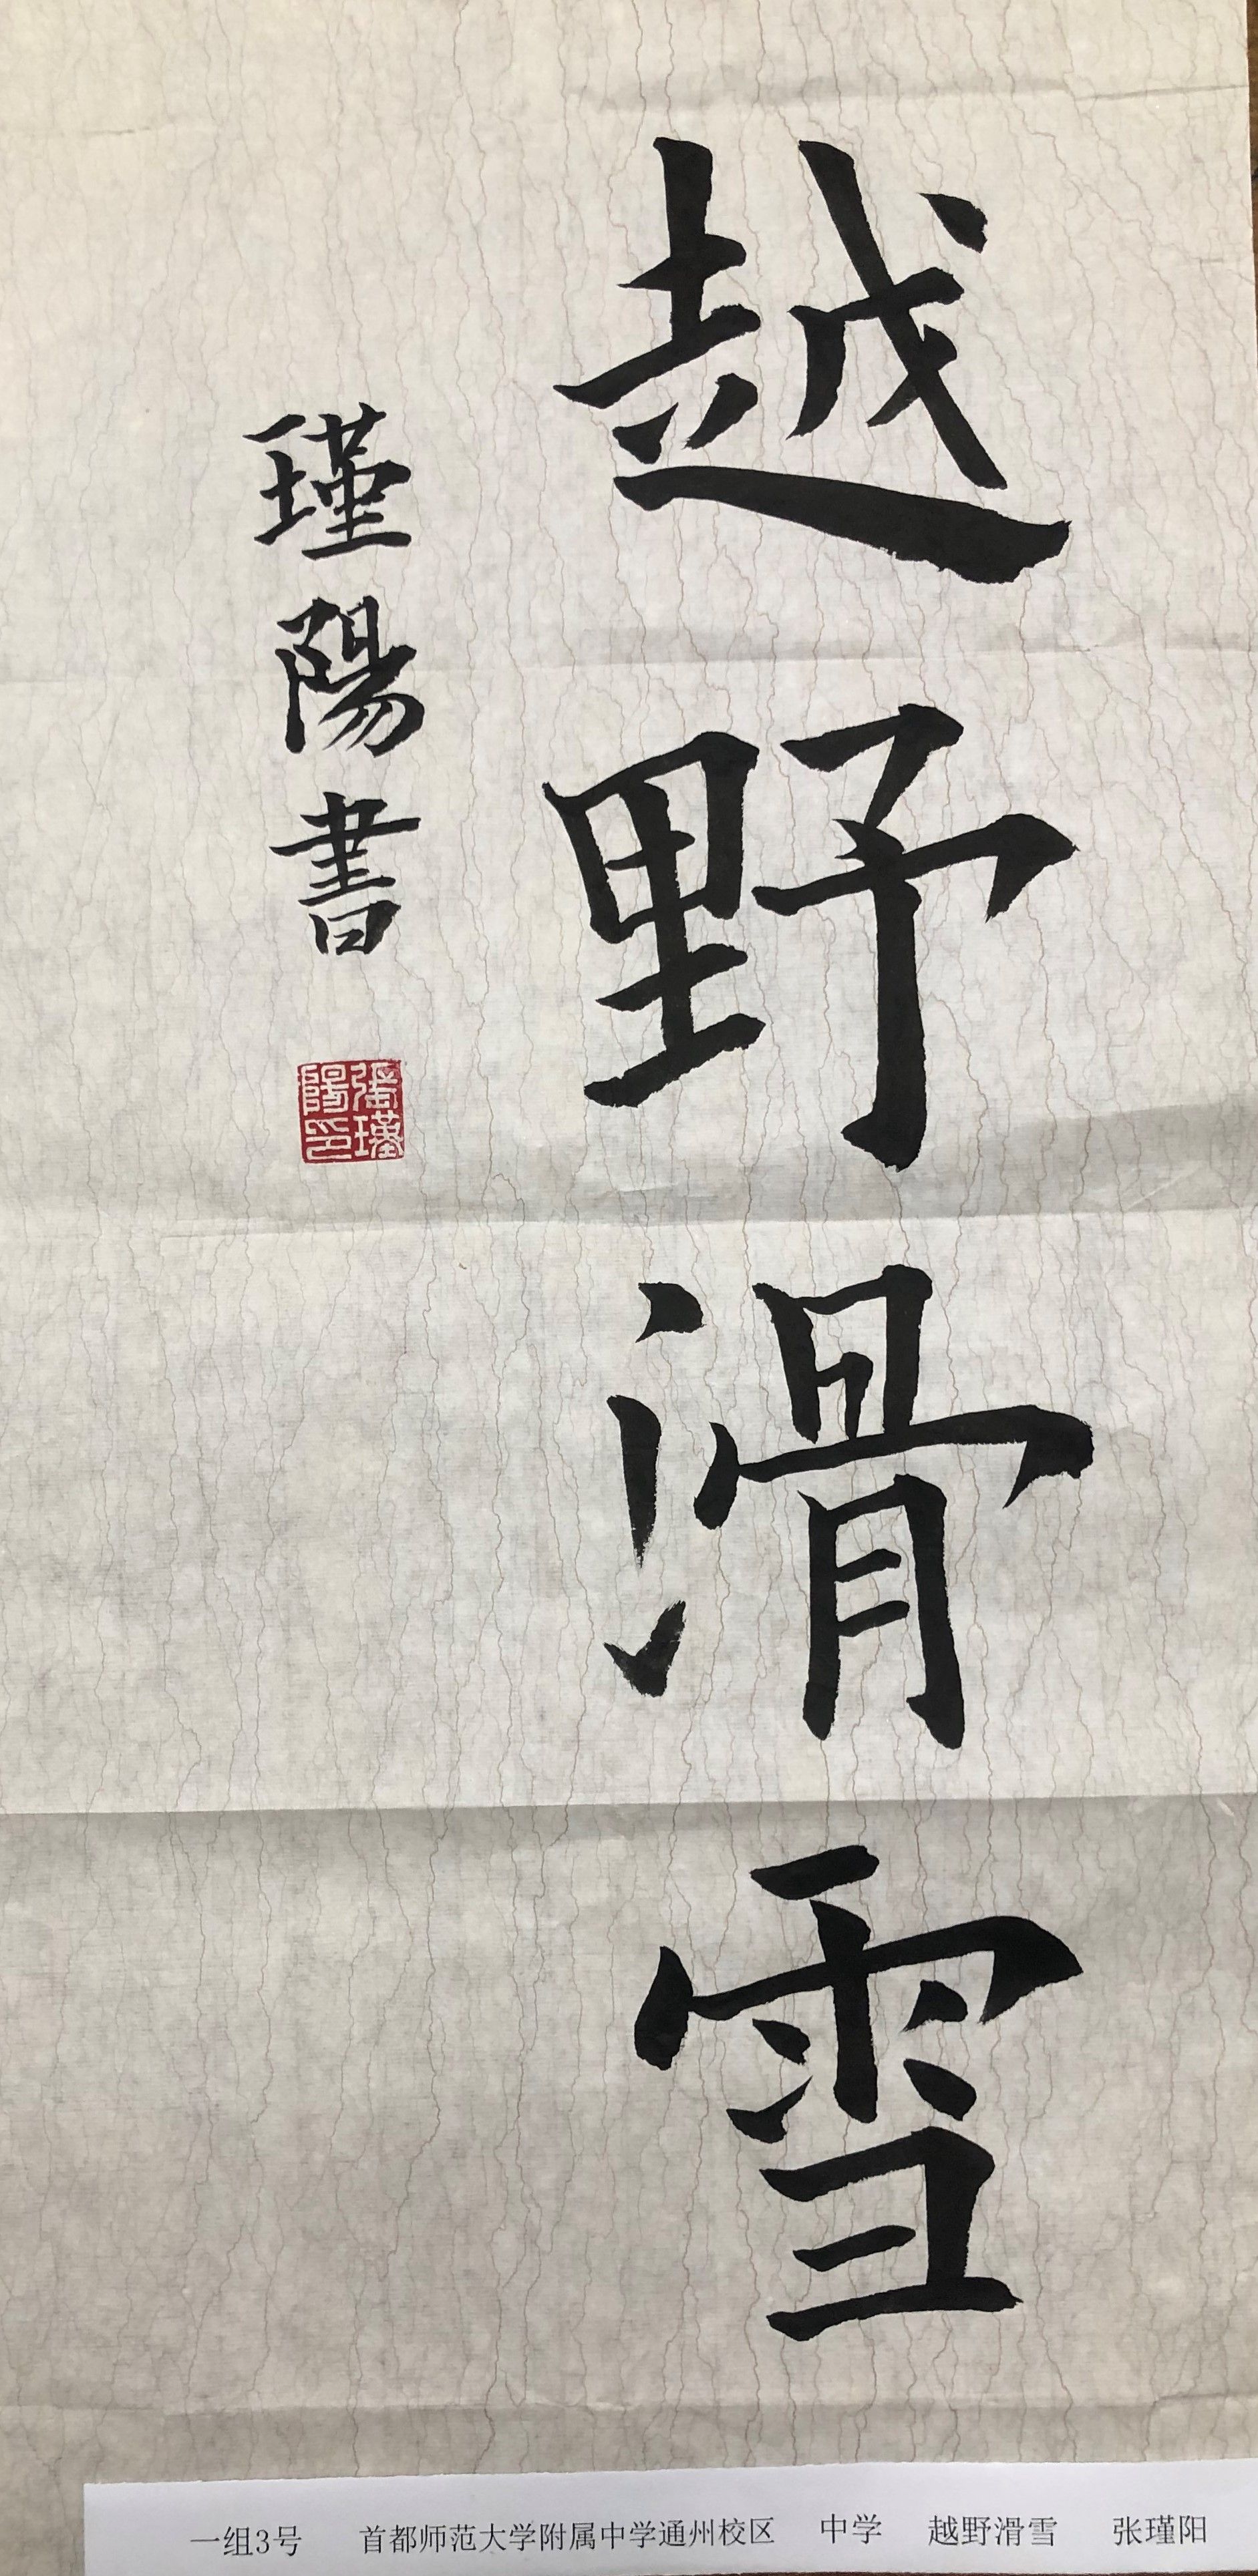 越野滑雪
瑾陽書
張瑾陽印
一组3号 首都师范大学附属中学通州校区 中学 越野滑雪 张瑾阳